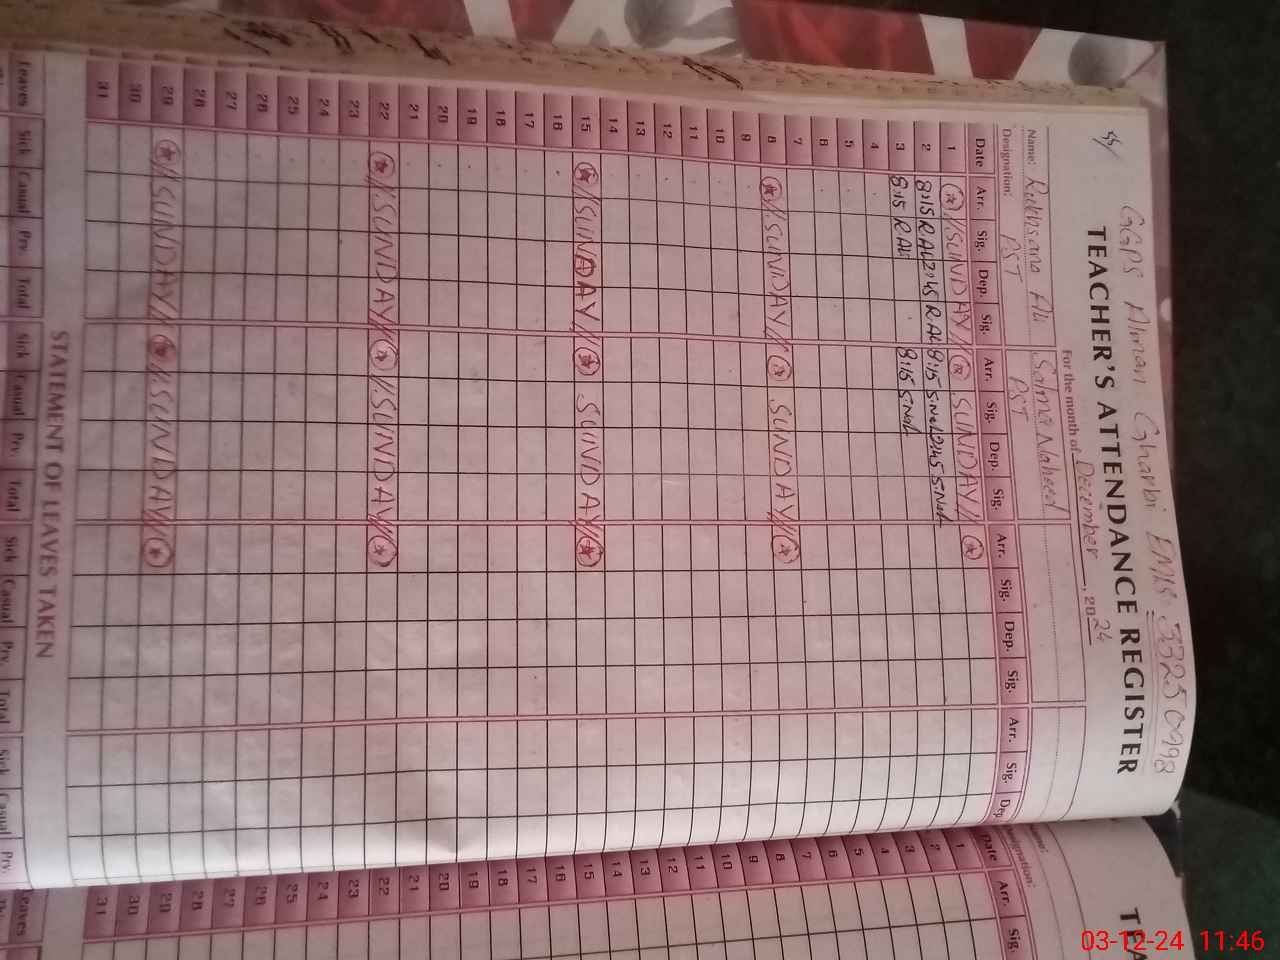 GGPS Aiman Gharbi EMIS
TEACHER'S ATTENDANCE REGISTER
For the month of December, 2024
Name: Rukhsana Ali Salma Naheed
Designation: PST PST
Date Arr. Sig. Dep. Sig. Arr. Sig. Dep. Sig. Arr. Sig. Dep. Sig. Arr. Sig. Dep.
1 SUNDAY SUNDAY
2 8:15 R Ali 2:45 R Ali 8:15 S.Nah 2:45 S.Nah
3 8:15 R Ali 8:15 S.Nah
4
5
6
7
8 SUNDAY SUNDAY
9
10
11
12
13
14
15 SUNDAY SUNDAY
16
17
18
19
20
21
22 SUNDAY SUNDAY
23
24
25
26
27
28
29 SUNDAY SUNDAY
30
31
STATEMENT OF LEAVES TAKEN
Leaves Sick Casual Prv. Total Sick Casual Prv. Total Sick Casual Prv. Total Sick Casual Prv.
Designation:
Date Arr. Sig.
1
2
3
4
5
6
7
8
9
10
11
12
13
14
15
16
17
18
19
20
21
22
23
24
25
26
27
28
29
30
31
Leaves
03-12-24 11:46